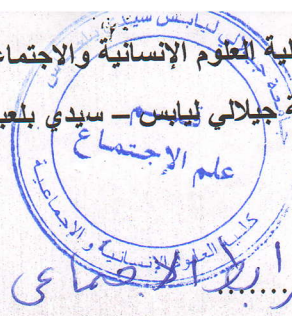 لية العلوم الإنسانية والاجتما
ة جيلالي ليابس – سيدي بلعبا
قسم
علم الإجتماع
كلية العلوم الإنسانية و الاجتماعية
الاجتماعي